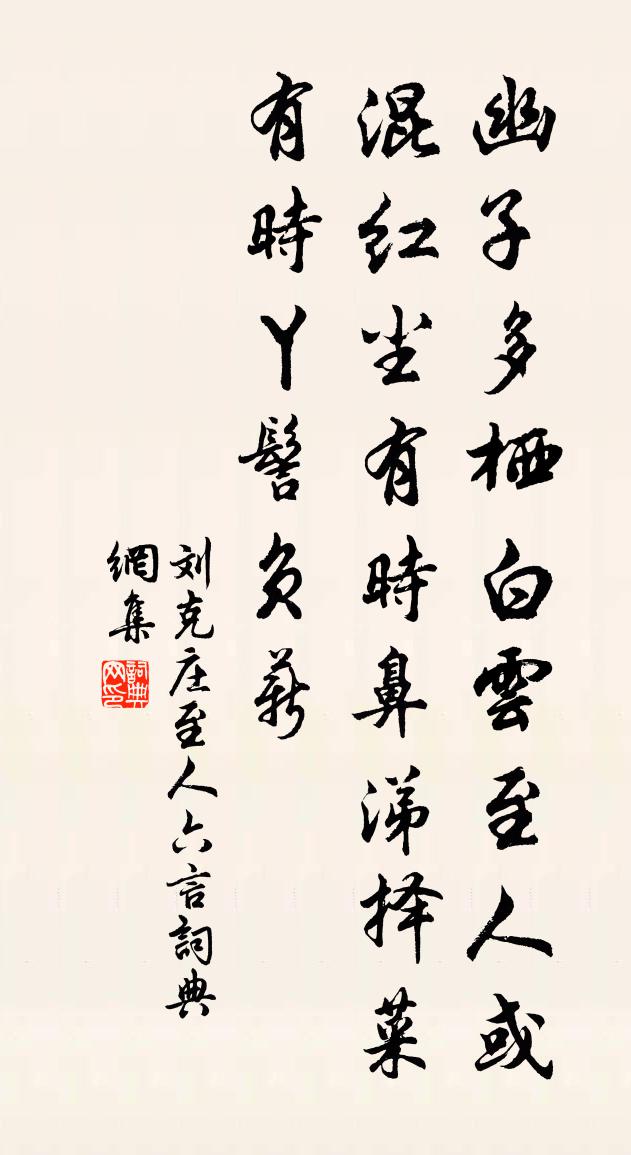 幽子多栖白雲至人或
混红尘有時鼻涕择菜
有時丫髻负薪
刘克庄至人六言詞典
網集
詞典
网印